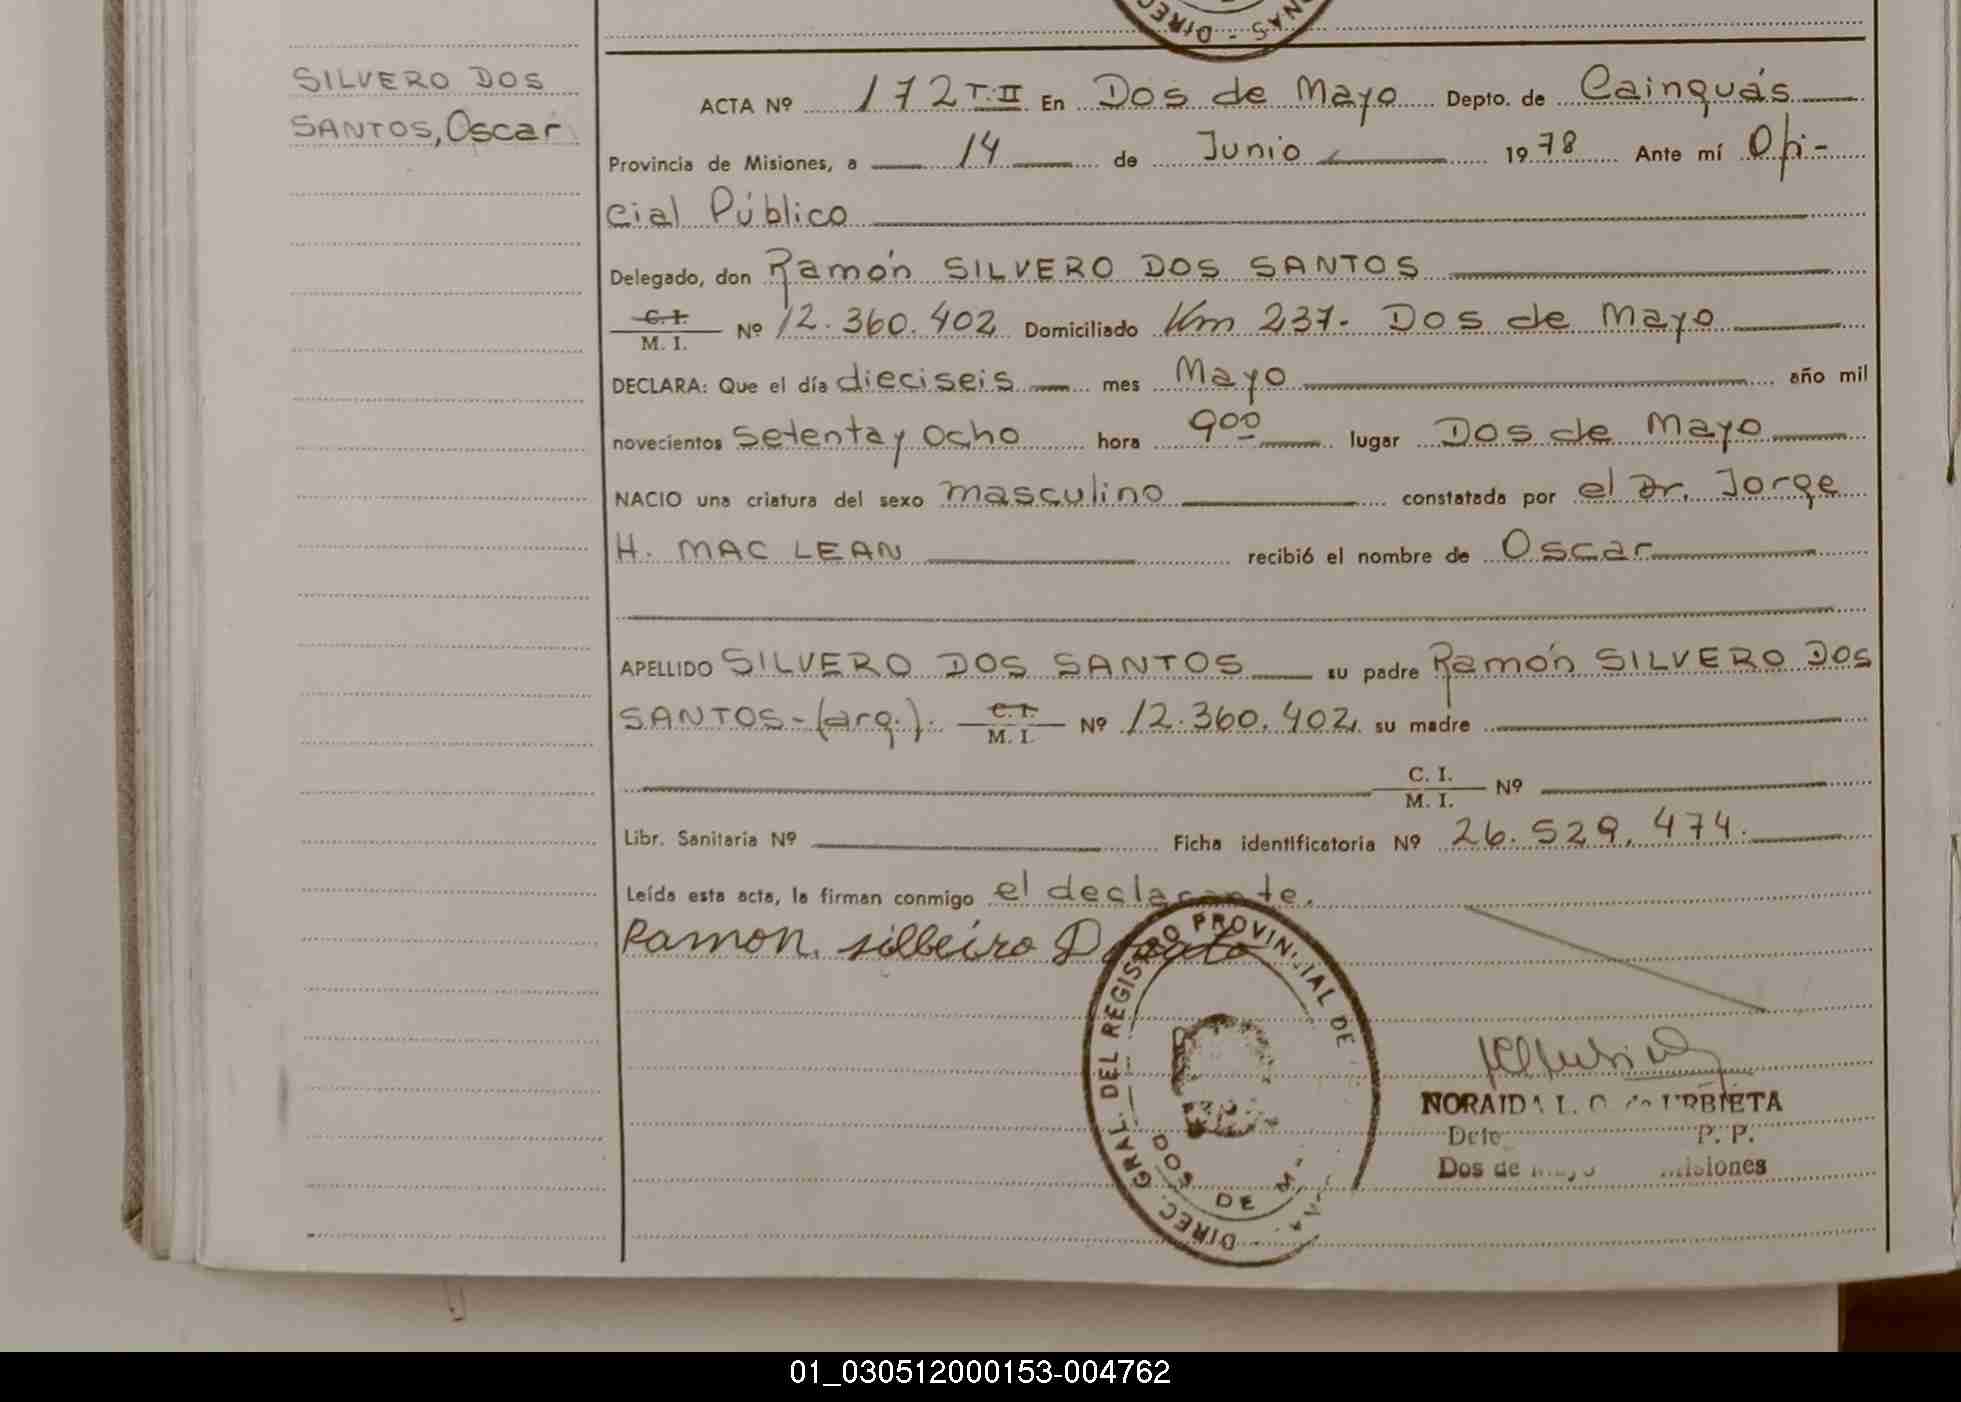 NAS - DIREC
SILVERO DOS
SANTOS, Oscar
ACTA Nº 172 T.II En Dos de Mayo Depto. de Cainguás
Provincia de Misiones, a 14 de Junio 1978 Ante mí Ofi-
cial Público
Delegado, don Ramón SILVERO DOS SANTOS
C. I.
M. I. Nº 12.360.402 Domiciliado Km 237. Dos de Mayo
DECLARA: Que el día dieciseis mes Mayo año mil
novecientos setenta y ocho hora 9 00 lugar Dos de Mayo
NACIO una criatura del sexo masculino constatada por el Dr. Jorge
H. MAC LEAN recibió el nombre de Oscar
APELLIDO SILVERO DOS SANTOS su padre Ramón SILVERO DOS
SANTOS-(arg.). C. I. M. I. Nº 12.360.402 su madre
C. I.
M. I. Nº
Libr. Sanitaria Nº Ficha identificatoria Nº 26.529.474.
Leída esta acta, la firman conmigo el declarante.
Ramon silbeiro
DIREC. GRAL. DEL REGISTRO PROVINCIAL DE
DOS DE M
NORAIDA L. URBIETA
P. P.
Dos de Mayo Misiones
01_030512000153-004762